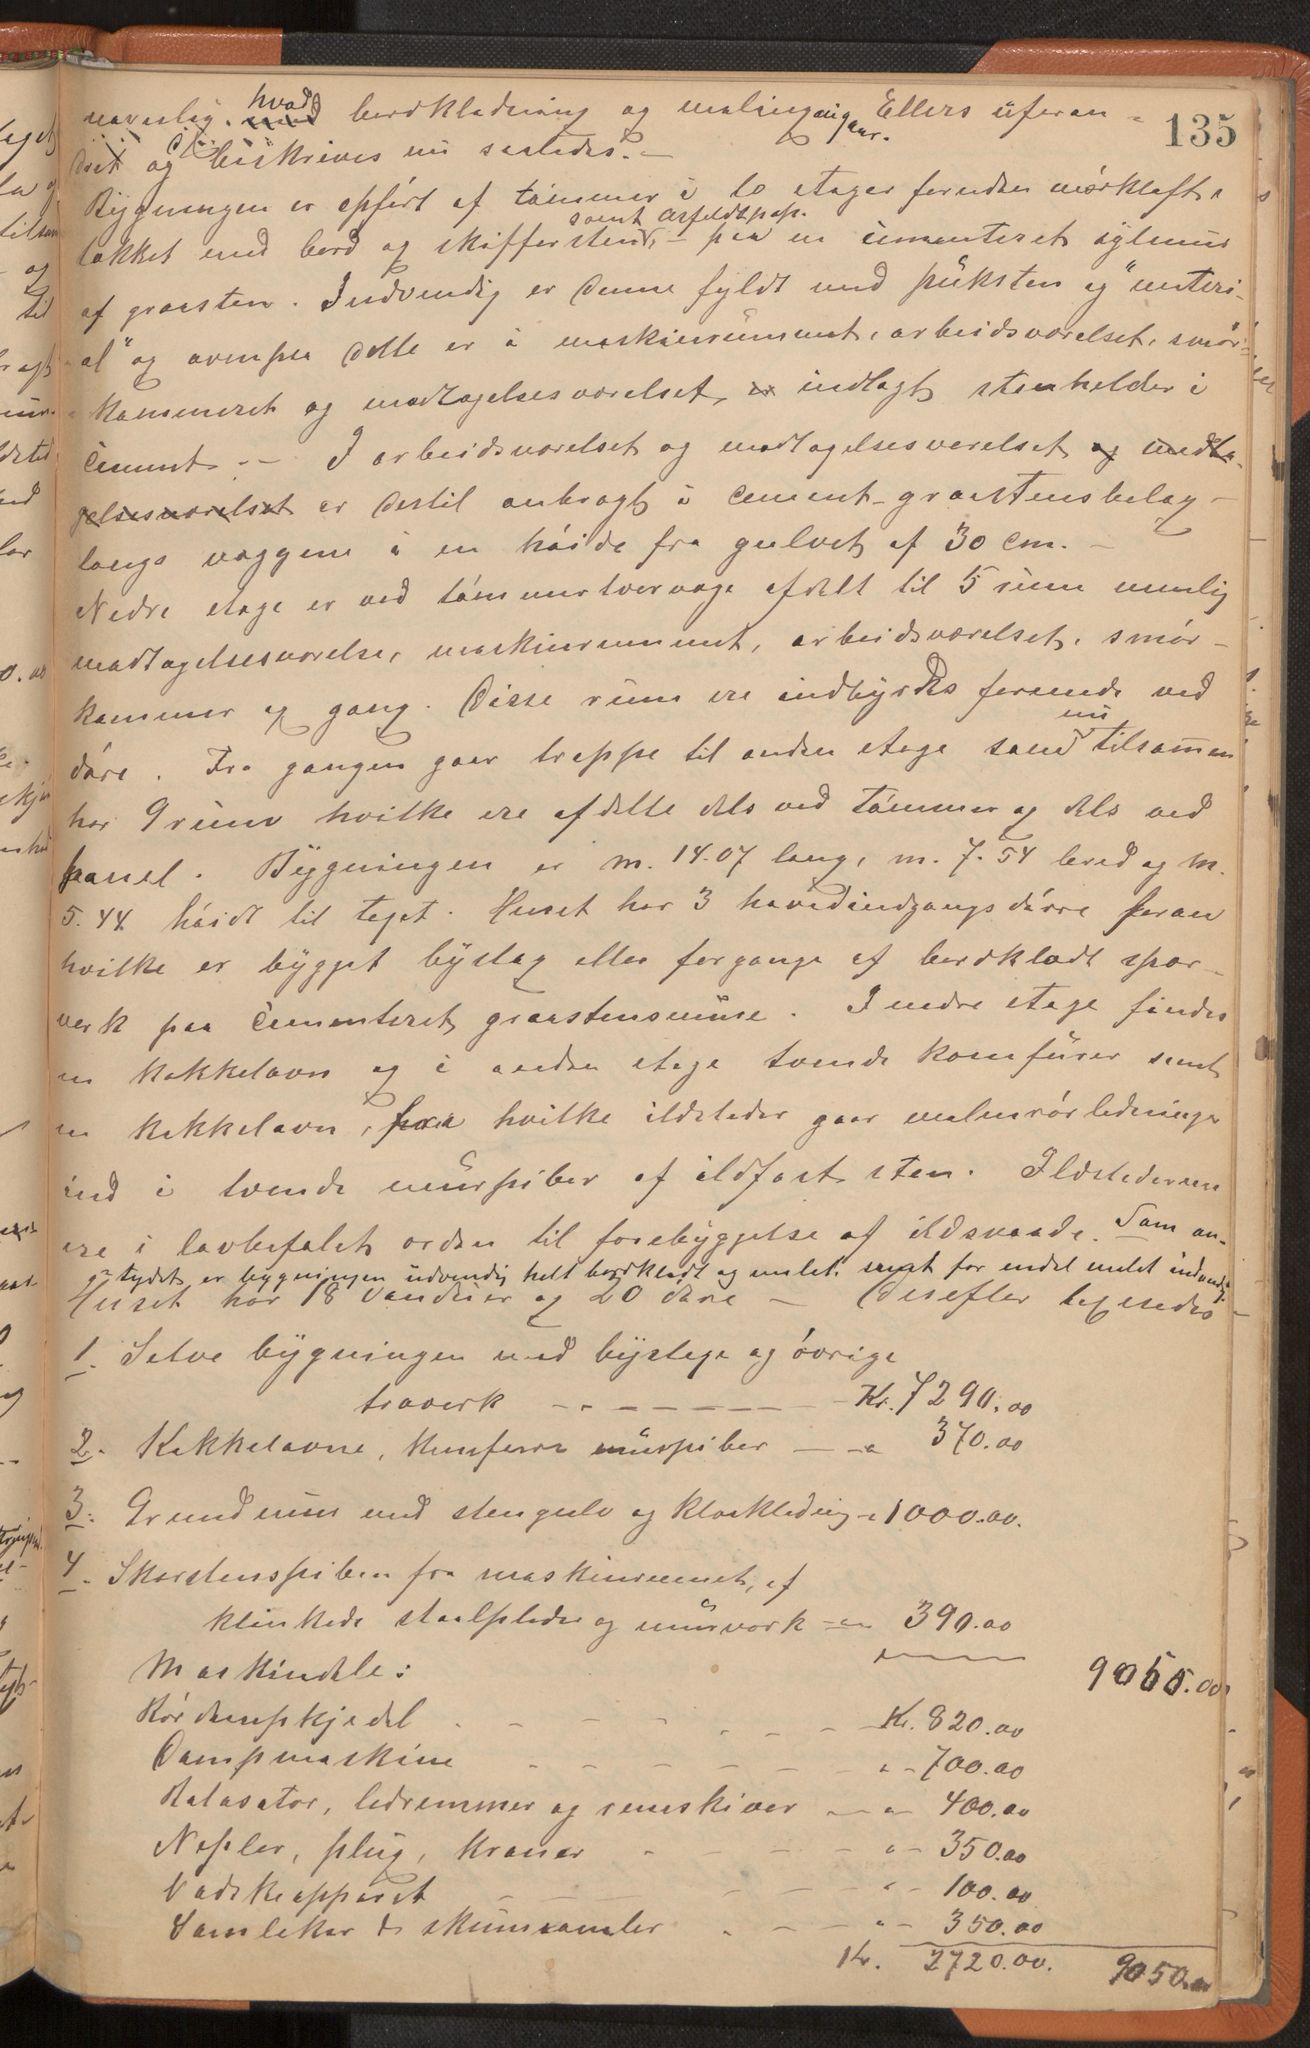 135
navnlig hvad bordklædning og maling angaar. Ellers uforan-
dret og beskrives nu saaledes. —
Bygningen er opført af tømmer i to etager foruden mørkloft,
tækket med bord og skiffersten, samt asfeldtpap. — paa en sementeret sylmur
af graasten. Indvendig er denne fyldt med puksten og "materi-
al" og ovenpaa dette er i maskinrummet, arbeidsværelset, smør-
kammeret og modtagelsesværelset er indlagt stenheller i
cement. — I arbeidsværelset og modtagelsesværelset og modta-
gelsesværelset er dertil anbragt i cement graastensbelæg
langs væggene i en høide fra gulvet af 30 cm. —
Nedre etage er ved tømmertvervæge afdelt til 5 rum nemlig
modtagelsesværelse, maskinrummet, arbeidsværelset, smør-
kammer og gang. Disse rum ere indbyrdes forenede ved
døre. Fra gangen gaar trappe til anden etage som nu tilsammen
har 9 rum hvilke ere afdelte dels ved tømmer og dels ved
panel. Bygningen er m. 14.07 lang, m. 7.54 bred og m.
5.44 høidt til taget. Huset har 3 hovedindgangsdørre foran
hvilke er bygget byslag eller forgange af bordklædt spar-
verk paa cementeret graastensmure. I nedre etage findes
en kakkelovn og i anden etage tvende komfurer samt
en kakkelovn, fra hvilke ildsteder gaar malmrørledninger
ind i tvende murpiber af ildfast sten. Ildstederne
ere i lovbefalet orden til forebyggelse af ildsvaade. Som an-
tydet er bygningen udvendig helt bordklædt og malet samt for endel malet indvendig.
Huset har 18 vinduer og 20 døre — Derefter taxeredes —
1. Selve bygningen med byslage og øvrige
træverk — — — — — — Kr. 7290.00
2. Kakkelovne, komfurer murpiber — — " 370.00
3. Grundmur med stengulv og kloakledning - " 1000.00.
4. Skorstenspiben fra maskinrummet, af
klinkede staalplader og murverk — " 390.00
9055.00
Maskindele:
Rørdampkjedel - - - - - - Kr. 820.00
Dampmaskine - - - - - - " - 700.00
Ratasator, ledremmer og remskiver — " - 400.00
Nepler, plug, kraner - - - - " - 350.00
Vadskeapparat - - - - " - 100.00
Samlekar & skumsamler - - - " - 350.00
Kr. 2720.00. 9050.00